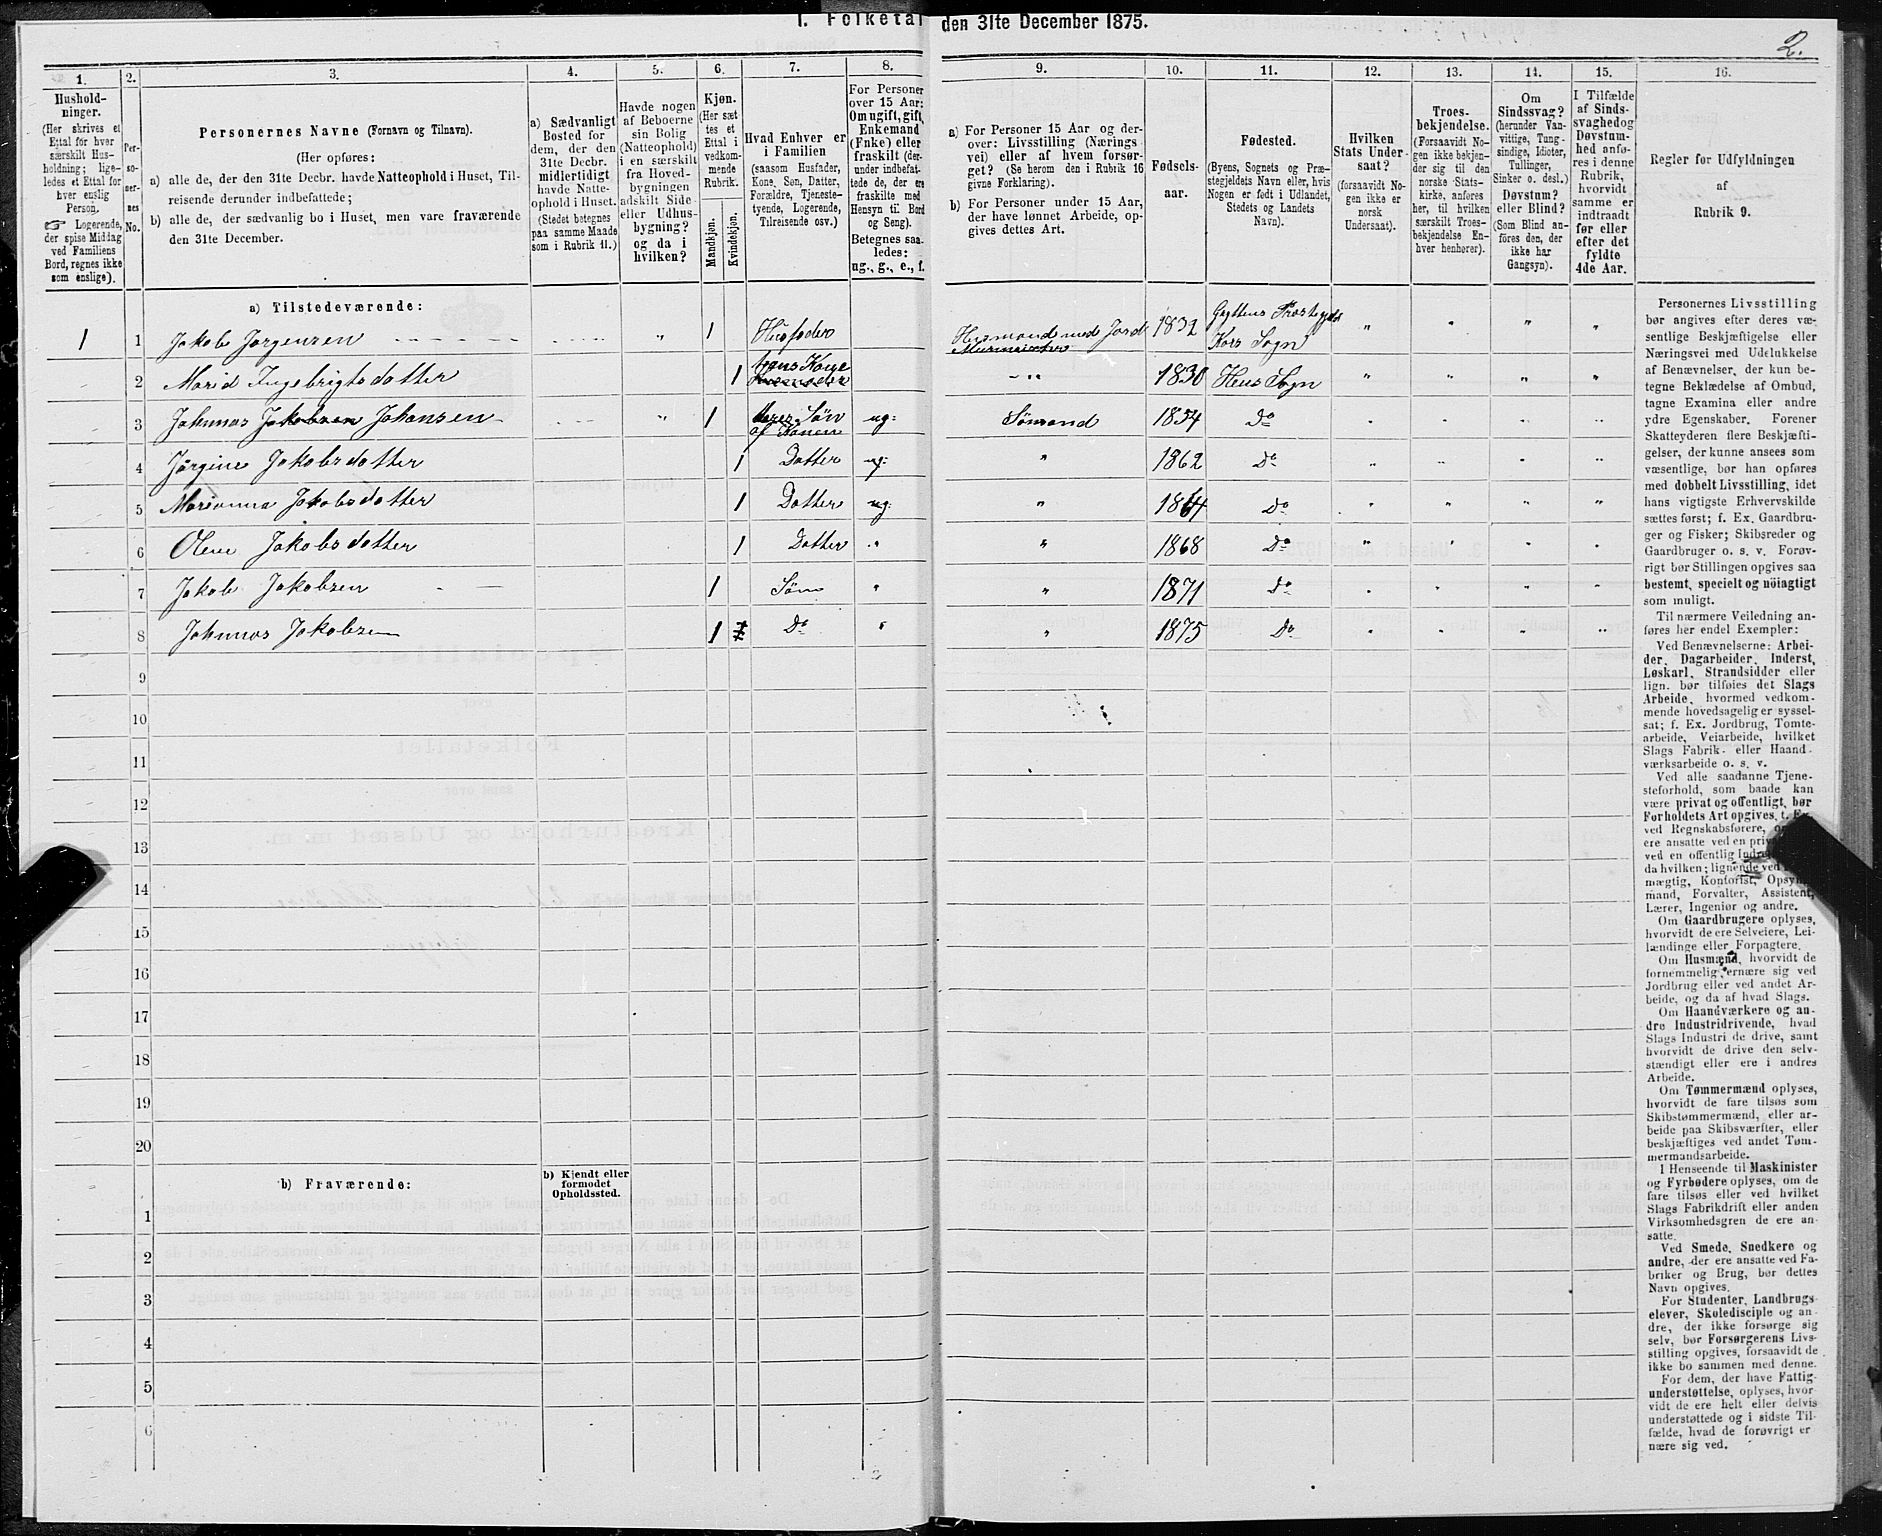 1. Folketal den 31te December 1875.
2.
1. 2. 3. 4. 5. 6. 7. 8. 9. 10. 11. 12. 13. 14. 15. 16.
Hushold-
ninger.
(Her skrives et
Ettal for hver
særskilt Hus-
holdning; lige-
ledes et Ettal for
hver enslig
Person.
☞ Logerende,
der spise Middag
ved Familiens
Bord, regnes ikke
som enslige).
Per-
so-
ner-
nes
No.
Personernes Navne (Fornavn og Tilnavn).
(Her opføres:
a) alle de, der den 31te Decbr. havde Natteophold i Huset, Til-
reisende derunder indbefattede;
b) alle de, der sædvanlig bo i Huset, men vare fraværende
den 31te December.
a) Sædvanligt
Bosted for
dem, der den
31te Decbr.
midlertidigt
havde Natte-
ophold i Huset.
(Stedet betegnes
paa samme Maade
som i Rubrik 11.)
Havde nogen
af Beboerne
sin Bolig
(Natteophold)
i en særskilt
fra Hoved-
bygningen
adskilt Side-
eller Udhus-
bygning?
og da i
hvilken?
Kjøn.
(Her sæt-
tes et
Ettal i
vedkom-
mende
Rubrik.
Mandkjøn.
Kvindekjøn.
Hvad Enhver er
i Familien
(saasom Husfader,
Kone, Søn, Datter,
Forældre, Tjeneste-
tyende, Logerende,
Tilreisende osv.)
For Personer
over 15 Aar:
Om ugift, gift,
Enkemand
(Enke) eller
fraskilt (der-
under indbefat-
tede de, der ere
fraskilte med
Hensyn til Bord
og Seng).
Betegnes saa-
ledes:
ug., g., e., f.
a) For Personer 15 Aar og der-
over: Livsstilling (Nærings-
vei) eller af hvem forsør-
get? (Se herom den i Rubrik 16
givne Forklaring).
b) For Personer under 15 Aar,
der have lønnet Arbeide, op-
gives dettes Art.
Fødsels-
aar.
Fødested.
(Byens, Sognets og Præ-
stegjeldets Navn eller, hvis
Nogen er født i Udlandet,
Stedets og Landets
Navn).
Hvilken
Stats Under-
saat?
(forsaavidt No-
gen ikke er
norsk
Undersaat).
Troes-
bekjendelse.
(Forsaavidt No-
gen ikke bekjen-
der sig til den
norske Stats-
kirke, anføres
her, til hvilken
særskilt Troes-
bekjendelse En-
hver henhører).
Om
Sindssvag?
(herunder Van-
vittige, Tung-
sindige, Idioter,
Tullinger,
Sinker o. desl.)
Døvstum?
eller Blind?
(Som Blind an-
føres den, der
ikke har
Gangsyn).
I Tilfælde
af Sinds-
svaghed og
Døvstum-
hed anfø-
res i denne
Rubrik,
hvorvidt
samme er
indtraadt
før eller
efter det
fyldte
4de Aar.
Regler for Udfyldningen
af
Rubrik 9.
a) Tilstedeværende:
1 1 Jakob Jørgensen " 1 Husfader Husmand med Jord 1832 Præstegjeld Kors Sogn " " " "
2 Marid Ingebrigtsdatter 1 hans Kone " 1830 Hens Sogn " " " "
3 Johannes Jakobsen Johansen " 1 Søn af Konen ug: Sömand 1854 Do " " " "
4 Jørgine Jakobsdatter 1 Datter ug: " 1862 Do " " " "
5 Marianna Jakobsdatter 1 Datter ug: " 1864 Do " " " "
6 Oline Jakobsdatter 1 Datter " " 1868 Do " " " "
7 Jakob Jakobsen 1 Søn " " 1871 Do " " " "
8 Johannes Jakobsen 1 Do " " 1875 Do " " " "
9
10
11
12
13
14
15
16
17
18
19
20
b) Fraværende:
b) Kjendt eller
formodet
Opholdssted.
1
2
3
4
5
6
Personernes Livsstilling
bør angives efter deres væ-
sentlige Beskjæftigelse eller
Næringsvei med Udelukkelse
af Benævnelser, der kun be-
tegne Beklædelse af Ombud,
tagne Examina eller andre
ydre Egenskaber. Forener
Skatteyderen flere Beskjæfti-
gelser, der kunne ansees som
væsentlige, bør han opføres
med dobbelt Livsstilling, idet
hans vigtigste Erhvervskilde
sættes først; f. Ex. Gaardbru-
ger og Fisker; Skibsreder og
Gaardbruger o. s. v. Forøv-
rigt bør Stillingen opgives saa
bestemt, specielt og nöiagtigt
som muligt.
Til nærmere Veiledning an-
føres her endel Exempler:
Ved Benævnelserne: Arbei-
der, Dagarbeider, Inderst,
Løskarl, Strandsidder eller
lign. bør tilføies det Slags
Arbeide, hvormed vedkom-
mende hovedsagelig er syssel-
sat; f. Ex. Jordbrug, Tomte-
arbeide, Veiarbeide, hvilket
Slags Fabrik- eller Haand-
værksarbeide o. s. v.
Ved alle saadanne Tjene-
steforhold, som baade kan
være privat og offentligt, bør
Forholdets Art opgives, f. Ex.
ved Regnskabsførere, om de
ere ansatte ved en
ved en offentlig
da hvilken; lignende ved
mægtig, Kontorist, Opsyns-
mand, Forvalter, Assistent,
Lærer, Ingeniør og andre.
Om Gaardbrugere oplyses,
hvorvidt de ere Selveiere, Lei-
lændinge eller Forpagtere.
Om Husmænd, hvorvidt de
fornemmelig ernære sig ved
Jordbrug eller ved andet Ar-
beide, og da af hvad Slags.
Om Haandværkere og an-
dre Industridrivende, hvad
Slags Industri de drive, samt
hvorvidt de drive den selv-
stændigt eller ere i andres
Arbeide.
Om Tømmermænd oplyses,
hvorvidt de fare tilsøs som
Skibstømmermænd, eller ar-
beide paa Skibsværfter, eller
beskjæftiges ved andet Tøm-
mermandsarbeide.
I Henseende til Maskinister
og Fyrbødere oplyses, om de
fare tilsøs eller ved hvilket
Slags Fabrikdrift eller anden
Virksomhedsgren de ere an-
satte.
Ved Smede, Snedkere og
andre, der ere ansatte ved Fa-
briker og Brug, bør dettes
Navn opgives.
For Studenter, Landbrugs-
elever, Skoledisciple og an-
dre, der ikke forsørge sig
selv, bør Forsørgerens Livs-
stilling opgives, forsaavidt de
ikke bo sammen med denne.
For dem, der have Fattig-
understøttelse, oplyses, hvor-
vidt de ere helt eller delvis
understøttede og i sidste Til-
fælde, hvad de forøvrigt er
nære sig ved.